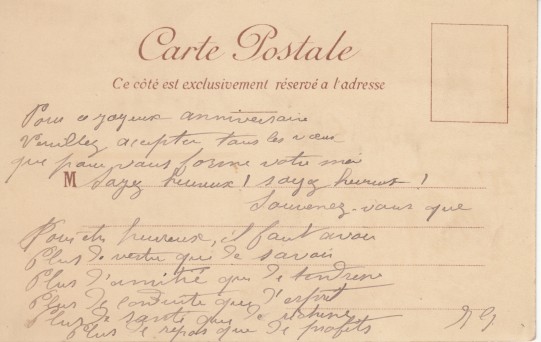 Carte Postale
Ce côté est exclusivement réservé a l'adresse
Pour ce joyeux anniversaire
Veuillez accepter tous les vœux
que pour vous forme votre ami
M Soyez heureux ! soyez heureux !
Souvenez-vous que
Pour être heureux, il faut avoir
Plus de vertu que de savoir
Plus d'amitié que de tendresse
Plus de conduite que d'esprit
Plus de santé que de richesse
Plus de repos que de profits